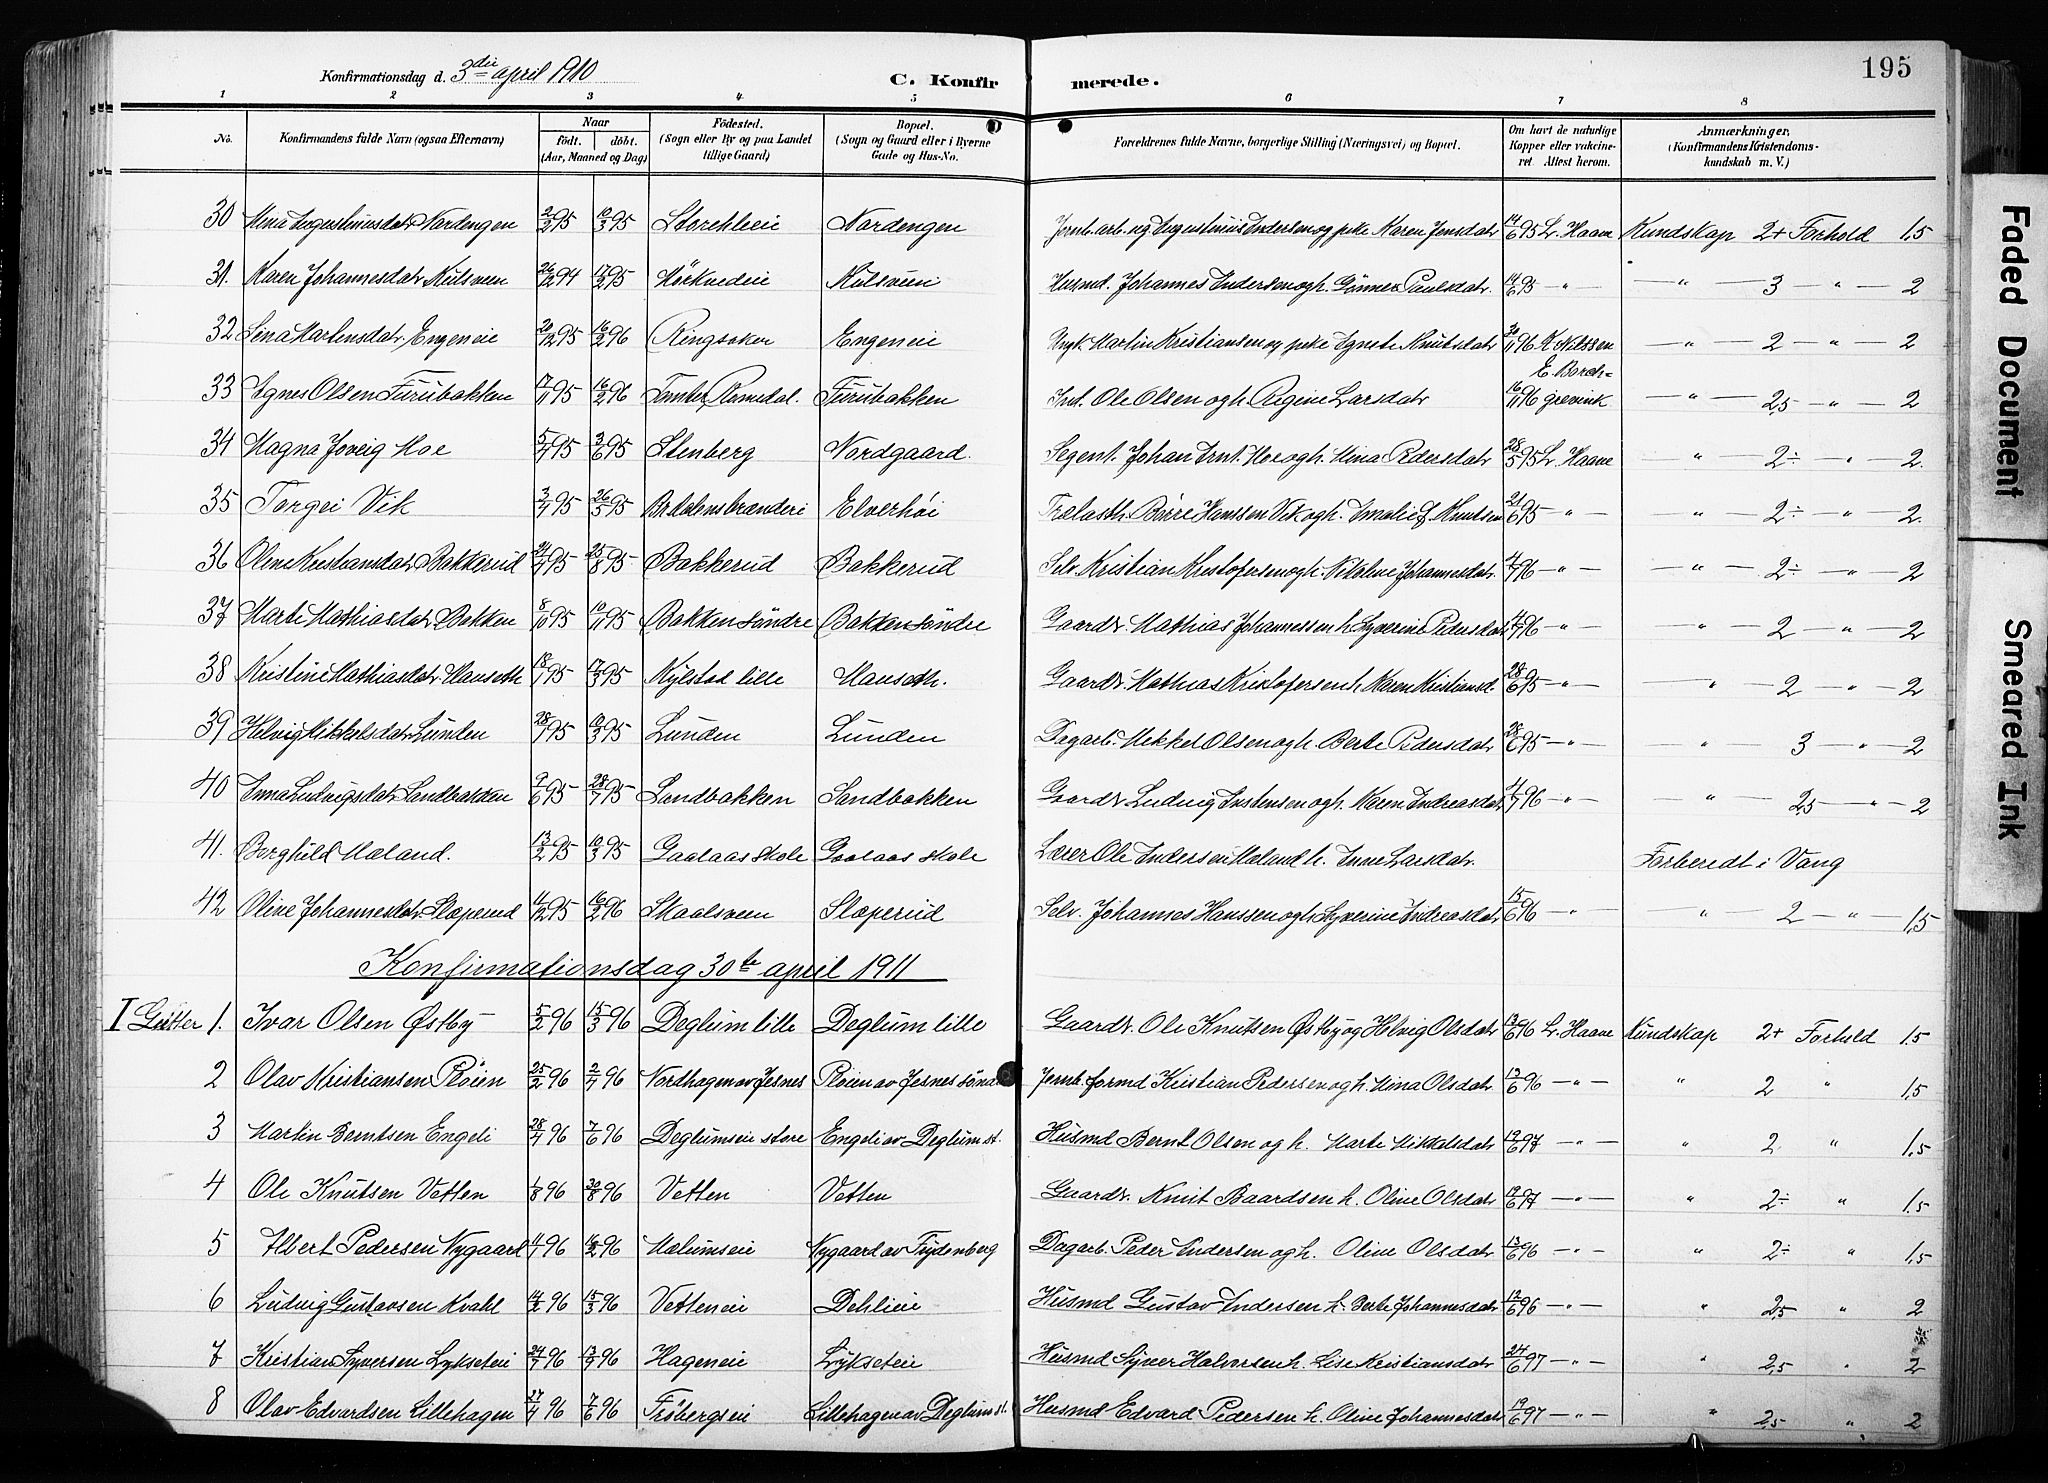 Konfirmationsdag d. 3die april 1910 C. Konfirmerede. 195
1 2 3 4 5 6 7 8
No. Konfirmandens fulde Navn (ogsaa Efternavn) Naar født. døbt. (Aar, Maaned og Dag) Fødested. (Sogn eller By og paa Landet tillige Gaard) Bopæl. (Sogn og Gaard eller i Byerne Gade og Hus-No. Forældrenes fulde Navne, borgerlige Stilling (Næringsvei) og Bopæl. Om havt de naturlige Kopper eller vakcineret Attest herom. Anmærkninger, (Konfirmandens Kristendomskundskab m. V.)
30 Mina Augustinusdatr Nordengen 2/2 95 10/3 95 Storehleie Nordengen Jernb.arb. ug Augustinus Andersen og pike Maren Jensdatr 14/6 95 Lr. Haave Kundskap 2+ Forhold 1,5
31. Karen Johannesdatr Kulsveen 26/12 94 17/2 95 Mørkvedeie Kulsveen Husmd. Johannes Andersen og h. Gunner Paulsdatr. 14/6 95 — " — — " — 3 — " — 2
32 Lina Martinsdatr Engeneie 20/12 95 16/2 96 Ringsaker Engeneie Ungk. Martin Kristiansen og pike Agnete Knutsdatr 30/11 96 K. Nilssen — " — 2 — " — 2
33 Agnes Olsen Furubakken 17/11 95 16/2 96 Romsdal. Furubakken Ind. Ole Olsen og h Regine Larsdatr 16/11 96 E. Borchgrevink — " — 2,5 — " — 2
34 Magna Joveig Moe 5/4 95 3/6 95 Stenberg Nordgaard. Segent. Johan Arnt. Moe og h. Mina Pedersdatr 28/5 95 Lr. Haave " — 2÷ — " — 2.
35 Torgei Vik 3/4 95 26/5 95 Elverhøi Trælasth. Børre Hanssen Vik og h. Amalie Knutsen 21/6 95 — " — — " — 2÷ — " — 2.
36 Oline Kristiansdatr Bakkerud 24/4 95 25/8 95 Bakkerud Bakkerud Selv. Kristian Kristofersen og h. Nikoline Johannesdatr. 4/7 96 — " — — " — 2÷ — " — 2
37 Marte Mathiasdatr Bakken 8/10 95 10/11 95 Bakken søndre Bakken søndre Gaardbr. Mathias Johannessen h Syverine Pedersdatr 4/7 96 — " — — " — 2 — " — 2
38 Kristine Mathiasdatr Manseth 18/1 95 17/3 95 Nylstad lille Manseth. Gaardbr. Mathias Kristofersen h. Karen Kristiansd. 28/6 95 — " — — " — 2 — " — 2
39 Helvig Mikkelsdatr Lunden 28/1 95 10/3 95 Lunden Lunden Dagarb. Mikkel Olsen og h Berte Pedersdatr 28/6 95 — " — — " — 3 — " — 2
40 Anna Ludvigsdatr Sandbakken 9/6 95 28/7 95 Sandbakken Sandbakken Gaardbr Ludvig Austensen og h. Karen Andreasdatr 4/7 96 — " — " — 2,5 — " — 2
41. Borghild Mæland. 13/2 95 10/3 95 Gaalaas skole Gaalaas skole Lærer Ole Andersen Mæland h. Anne Larsdatr. Forberedt i Vang
42 Oline Johannesdatr. Slæperud 11/12 95 16/2 96 Skaalsveen Slæperud Selv. Johannes Hanssen og h Syverine Andreasdatr 15/6 96 — " — " — 2 — " — 1,5
Konfirmationsdag 30te april 1911
I Gutter 1. Ivar Olsen Østby 5/2 96 15/3 96 Deglum lille Deglum lille Gaardbr. Ole Knutsen Østby og Helvig Olsdatr 13/6 96 Lr. Haave Kundskap 2+ Forhold 1,5
2 Olav Kristiansen Pløien 25/2 96 2/4 96 Nordhagen av Jesnes Pløien av Jesnes søndr Jernb. formd Kristian Pedersen og h. Mina Olsdatr 13/6 96 — " — " 2 " 1,5
3 Martin Berntsen Engeli 28/4 96 7/6 96 Deglumseie store Engeli av Deglum st. Husmd Bernt Olsen og h. Marte Mikkelsdatr 19/6 97 — " — " 2 " 1,5
4 Ole Knutsen Vetten 1/8 96 30/8 96 Vetten Vetten Gaardbr. Knut Baardsen h. Oline Olsdatr 19/6 97 — " — " 2÷ " 1,5
5 Albert Pedersen Nygaard 4/1 96 16/2 96 Mælumseie Nygaard av Frydenberg Dagarb. Peder Andersen og h. Oline Olsdatr 13/6 96 — " — " 2÷ " 1,5
6 Ludvig Gustavsen Kvahl 14/2 96 15/3 96 Vetteneie Dehlieie Husmd Gustav Andersen h. Berte Johannesdatr 13/6 96 — " — " 2,5 " 2
7 Kristian Syversen Lykseteie 24/7 96 13/9 96 Hageneie Lykseteie Husmd Syver Halvorsen h. Lise Kristiansdatr 24/6 97 — " — " 2,5 " 2
8 Olav Edvardsen Lillehagen 27/4 96 7/6 96 Frøbergseie Lillehagen av Deglum st. Husmd Edvard Pedersen h. Oline Johannesdatr 19/6 97 — " — " 2,5 " 2
Faded Document
Smeared Ink